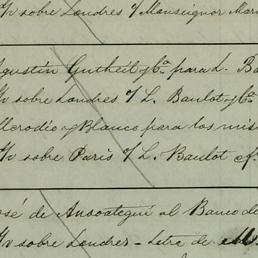 /v sobre Londres o/ Monseignor Mari
Agustin Gutheil y Cª para L. Ba
/v sobre Londres o/ L. Baulot y Cª
Merodio y Blanco para los mis
/v sobre Paris o/ L. Baulot
José de Ansoategui al Banco de
/v sobre Londres - Letra de